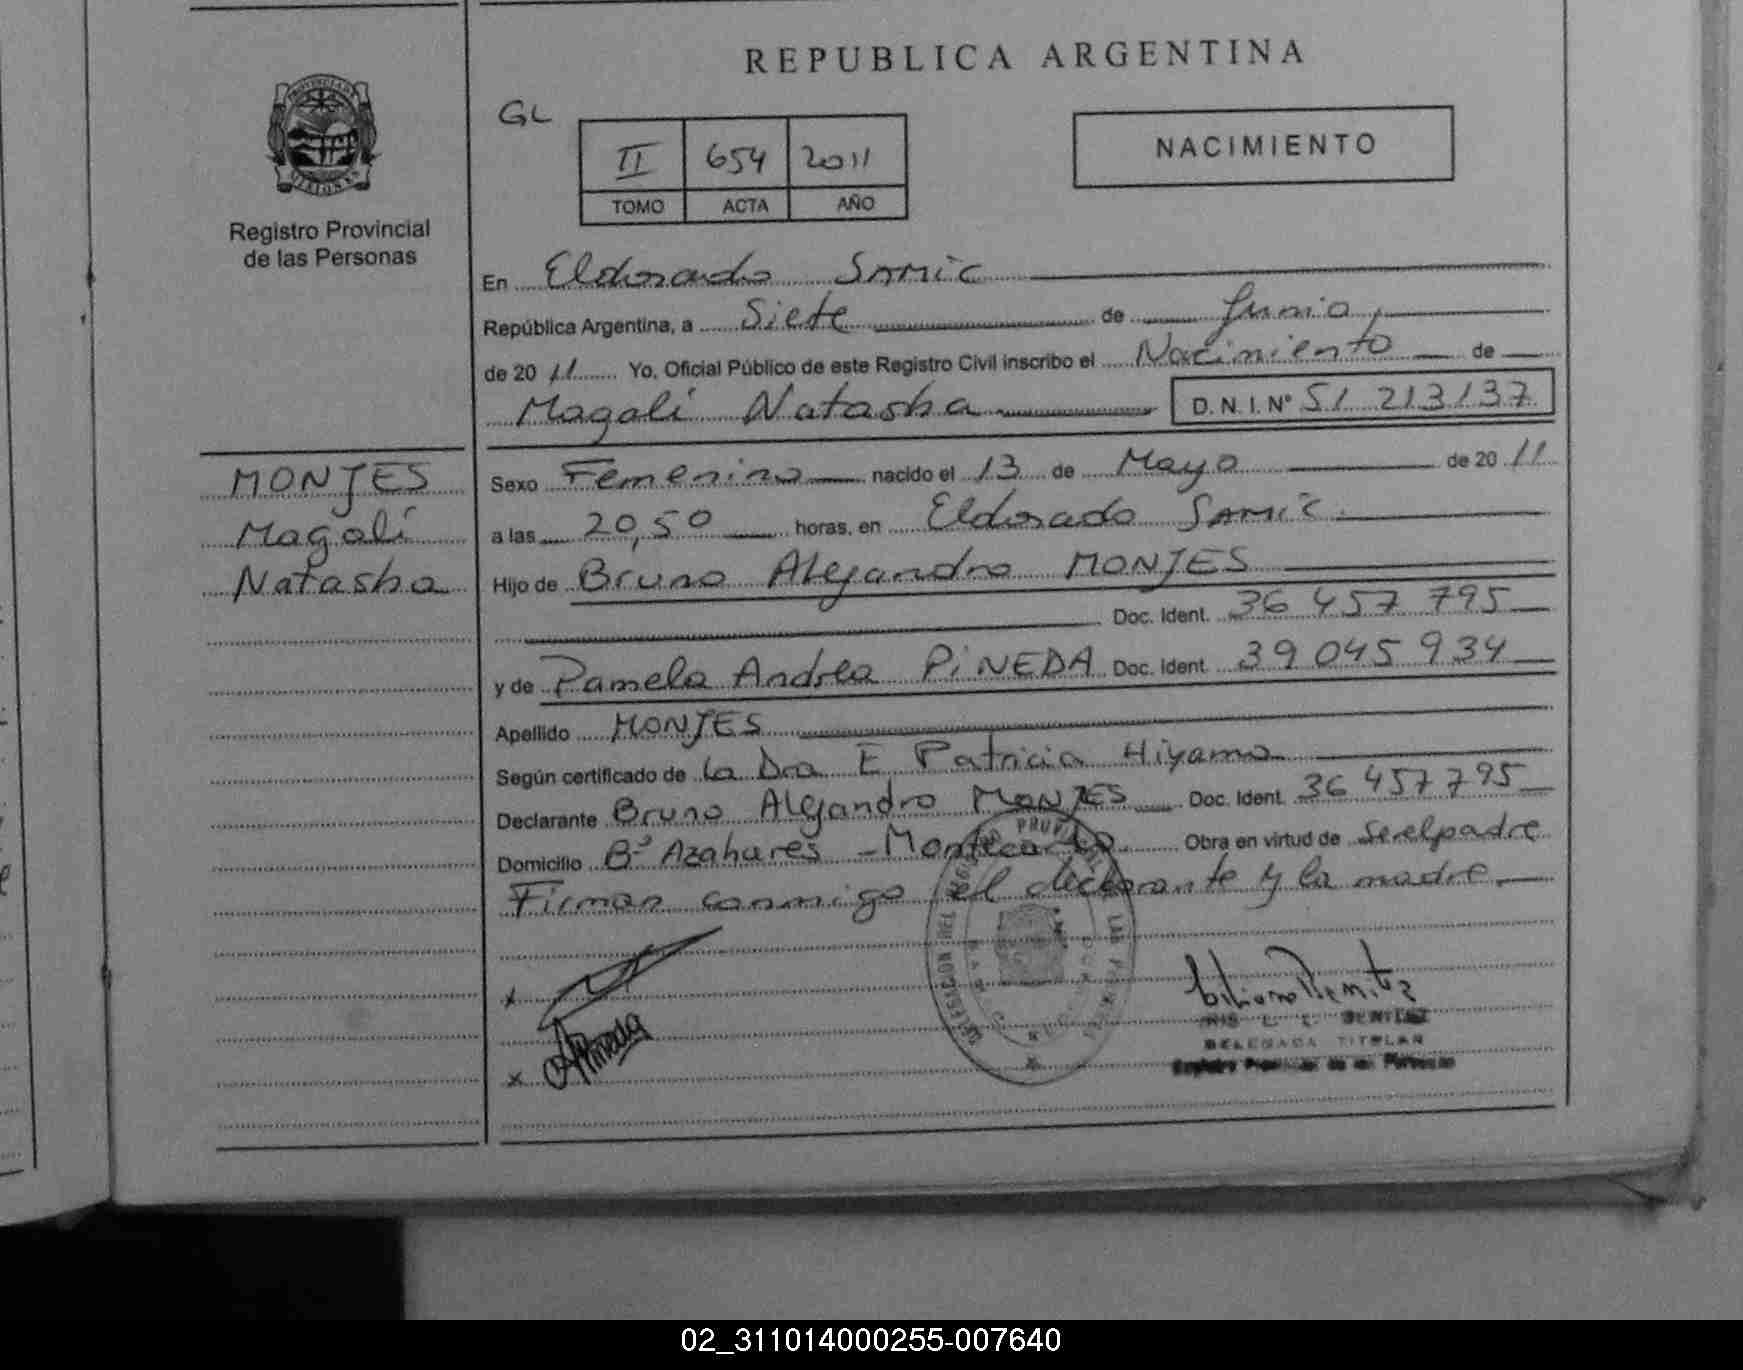 REPUBLICA ARGENTINA
GL
II 654 2011
TOMO ACTA AÑO
NACIMIENTO
PROVINCIA DE
MISIONES
Registro Provincial
de las Personas
En Eldorado SAMIC
República Argentina, a Siete de Junio,
de 2011 Yo, Oficial Público de este Registro Civil inscribo el Nacimiento de
Magalí Natasha D.N.I.Nº 51 213137
MONJES
Magalí
Natasha
Sexo Femenino nacido el 13 de Mayo de 2011
a las 20,50 horas, en Eldorado SAMIC.
Hijo de Bruno Alejandro MONJES
Doc. Ident. 36 457 795
y de Pamela Andrea PiNEDA Doc. Ident. 39 045 934
Apellido MONJES
Según certificado de la Dra E Patricia Hiyamo
Declarante Bruno Alejandro MONJES Doc. Ident. 36 457 795
Domicilio Bº Azahares - Montecarlo Obra en virtud de ser el padre
Firman conmigo el declarante y la madre.
x
x APineda
DELEGADA TITULAR
Registro Provincial de las Personas
02_311014000255-007640